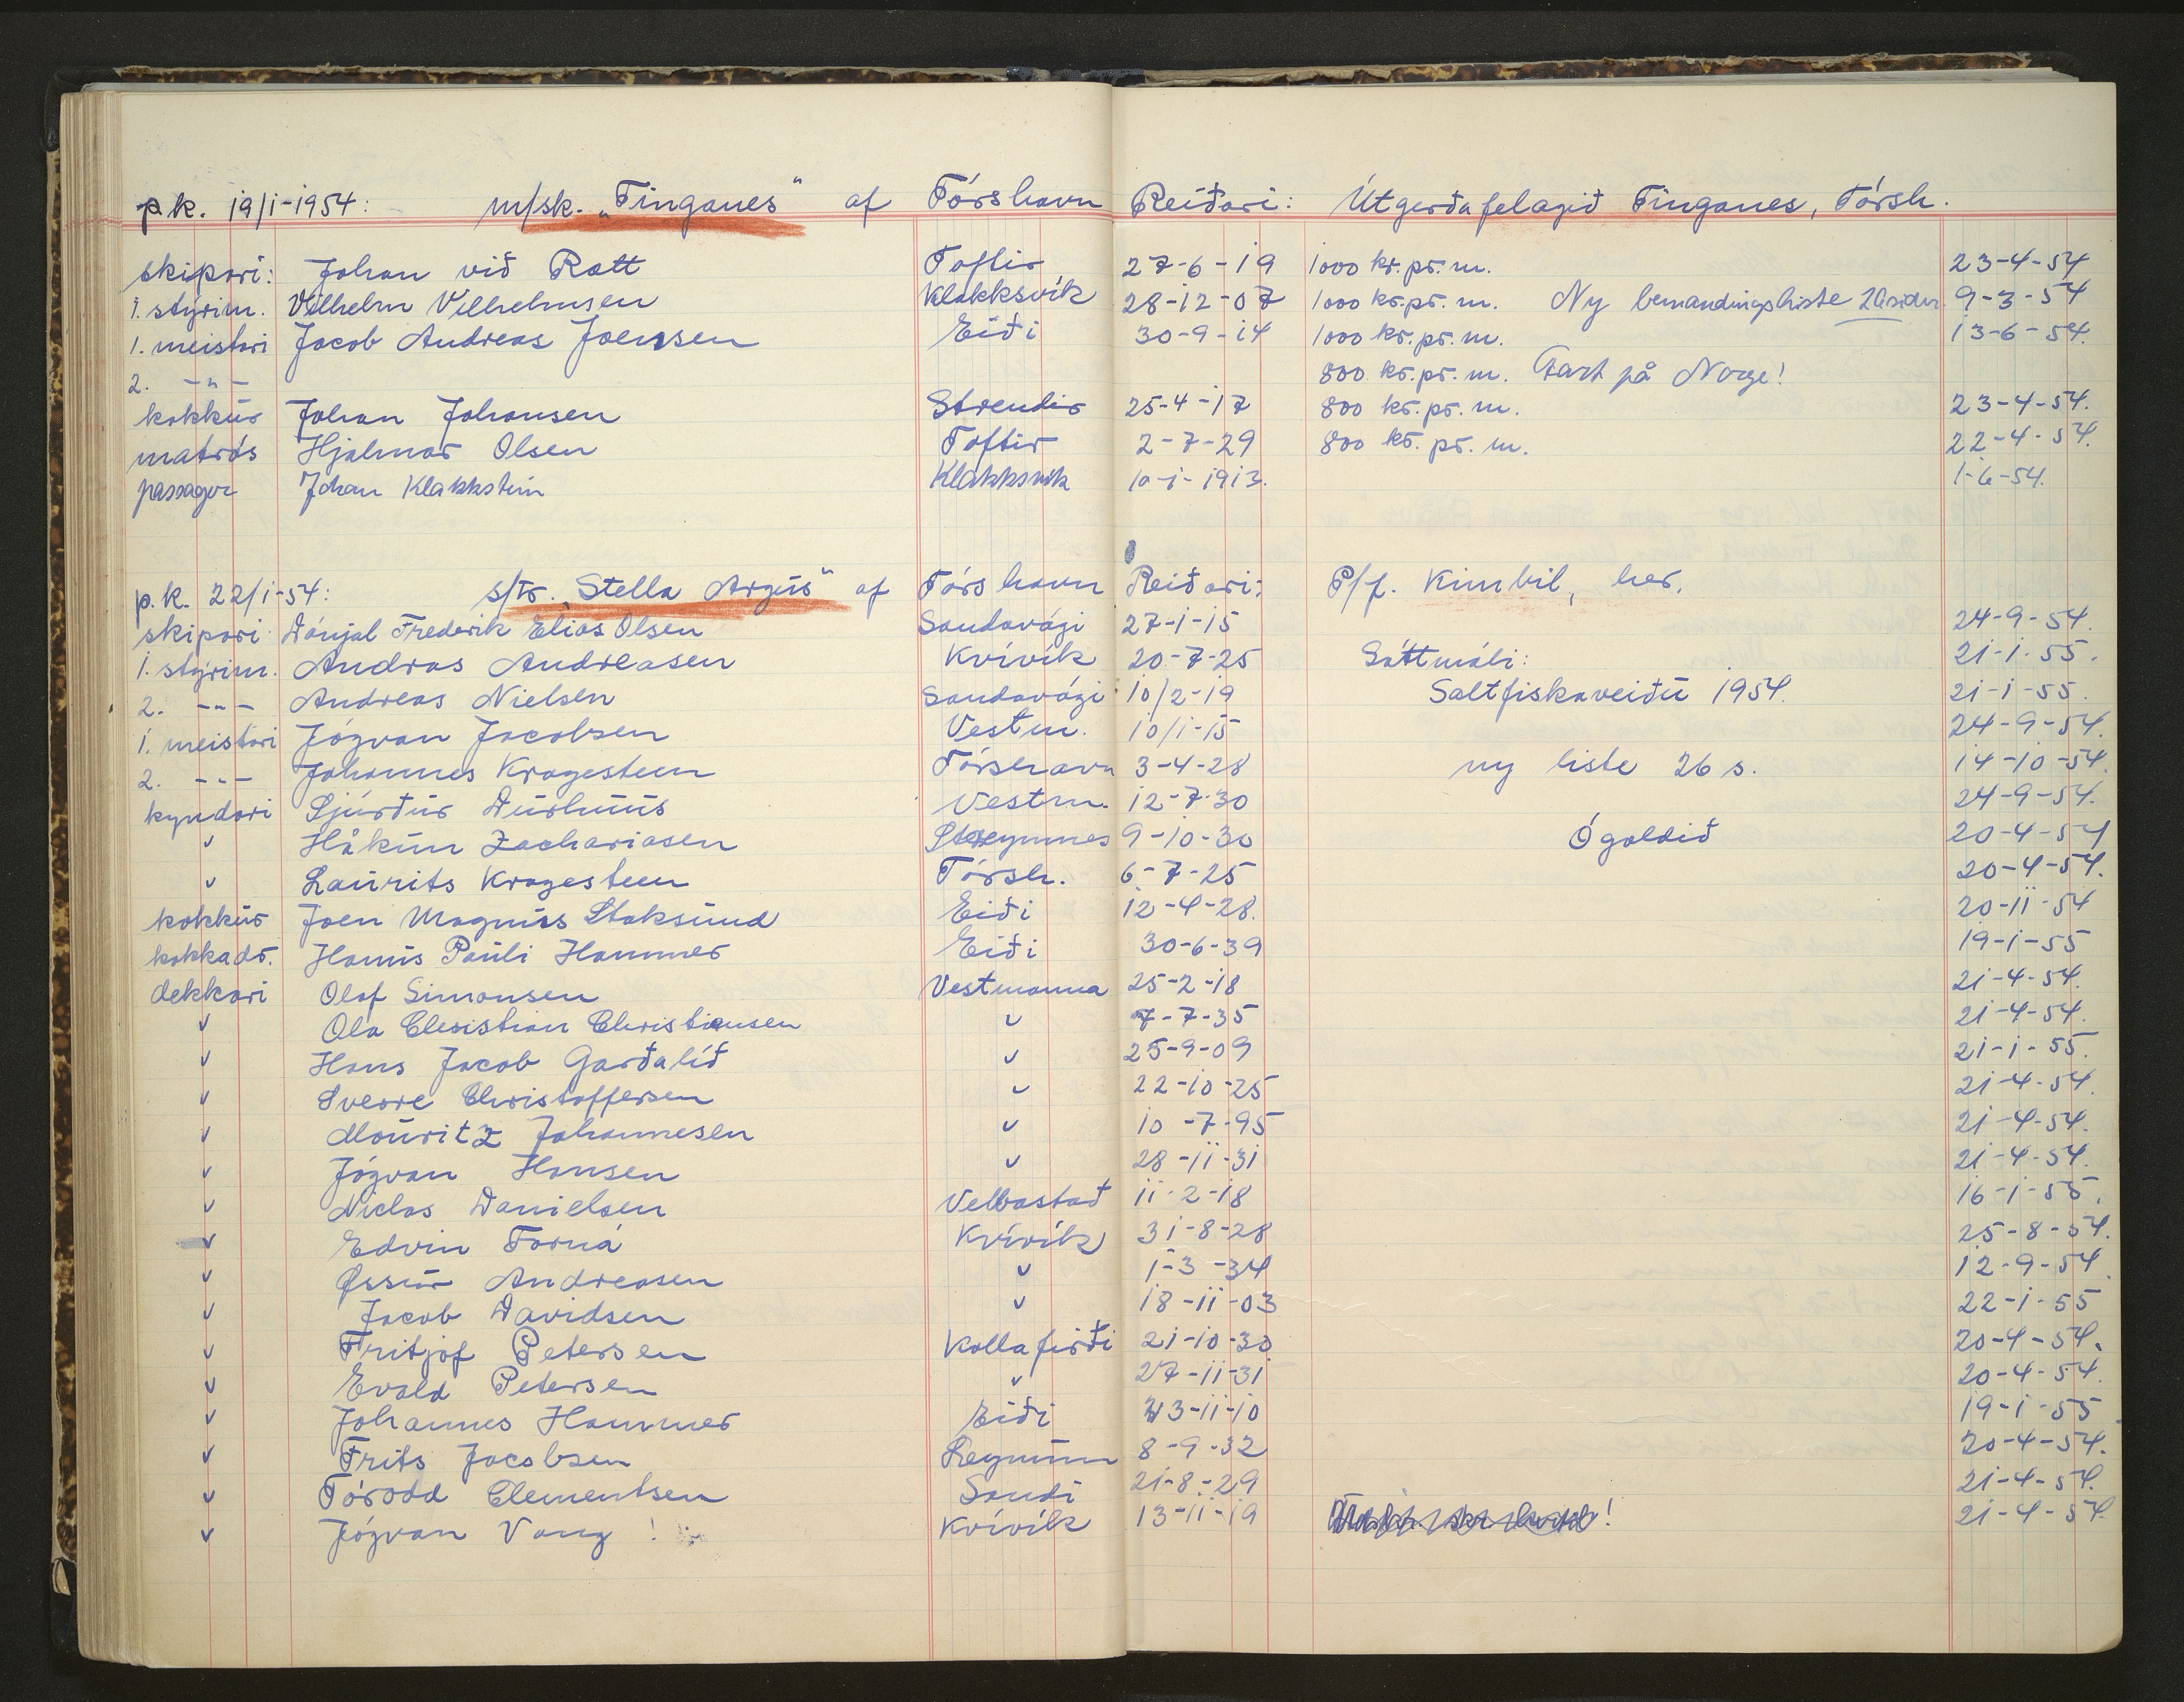 p.k. 19/1-1954: m/sk. „Tinganes" af Tórshavn Reiðari: Útgerðafelagið Tinganes, Tórsh.
skipari: Johan við Rott Toftir 27-6-19 1000 kr. pr. m. 23-4-54
1. stýrim. Vilhelm Vilhelmsen Klakksvík 28-12-07 1000 kr. pr. m. Ny bemandingsliste 20 siden. 9-3-54
1. meistari Jacob Andreas Joensen Eiði 30-9-14 1000 kr. pr. m. 13-6-54.
2. -"- 800 kr. pr. m. Fart på Norge!
kokkur Johan Johansen Strendir 25-4-17 800 kr. pr. m. 23-4-54.
matrós Hjalmar Olsen Toftir 2-7-29 800 kr. pr. m. 22-4-54.
passager Johan Klakkstein Klakksvik 10-1-1913. 1-6-54.
p.k. 22/1-54: s/tr. „Stella Argus" af Tórshavn Reiðari: P/f. Kimbil, her.
skipari: Dánjal Frederik Elias Olsen Sandavági 27-1-15 24-9-54.
1. stýrim. Andras Andreasen Kvívík 20-7-25 Sáttmáli: 21-1-55.
2. -"- Andreas Nielsen Sandavági 10/2-19 Saltfiskaveiðu 1954. 21-1-55.
1. meistari Jógvan Jacobsen Vestm. 10/1-15 24-9-54.
2. -"- Johannes Kragesteen Tórshavn 3-4-28 ny liste 26 s. 14-10-54.
kyndari Sjúrður Durhuus Vestm. 12-7-30 24-9-54.
" Håkun Zachariasen Streymnes 9-10-30 Ógoldið 20-4-54
" Laurits Kragesteen Tórsh. 6-7-25 20-4-54.
kokkur Joen Magnus Staksund Eiði 12-4-28. 20-11-54
kokkadr. Hanus Pauli Hammer Eiði 30-6-39 19-1-55
dekkari Olaf Simonsen Vestmanna 25-2-18 21-4-54.
" Ola Christian Christiansen " 7-7-35 21-4-54.
" Hans Jacob Garðalíð " 25-9-09 21-1-55.
" Sverre Christoffersen " 22-10-25 21-4-54.
" Mouritz Johannesen " 10-7-95 21-4-54.
" Jógvan Hansen " 28-11-31 21-4-54.
" Niclas Danielsen Velbastað 11-2-18 16-1-55.
" Edvin Torná Kvívík 31-8-28 25-8-54.
" Øssur Andreasen " 1-3-34 12-9-54.
" Jacob Davidsen " 18-11-03 22-1-55
" Fritjof Petersen Kollafirði 21-10-30 20-4-54.
" Evald Petersen " 27-11-31 20-4-54.
" Johannes Hammer Eiði 3-11-10 19-1-55.
" Frits Jacobsen Leynum 8-9-32 20-4-54.
" Tórodd Clementsen Sandi 21-8-29 21-4-54.
" Jógvan Vang ! Kvívík 13-11-19 ! 21-4-54.